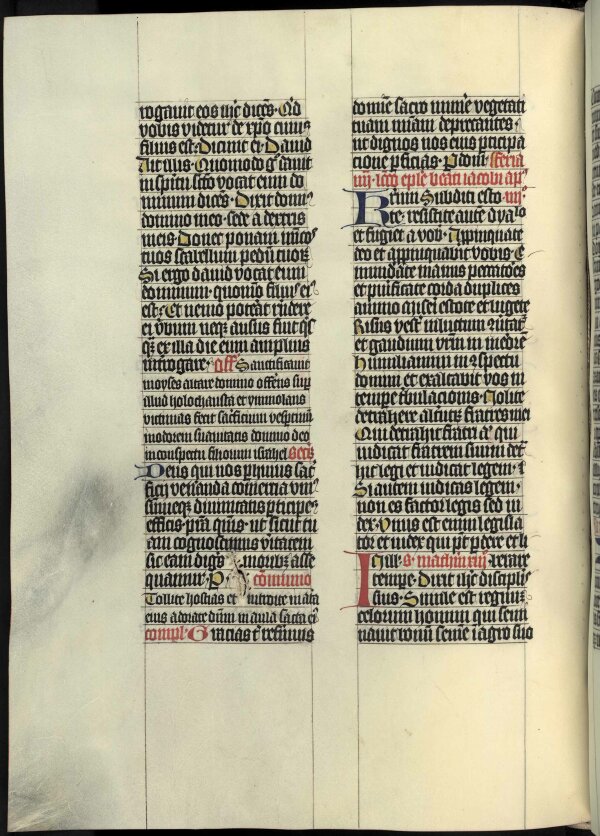 rogauit eos ihc dicens. Quid
vobis videtur de xpo cuius
filius est. Dicunt ei. Dauid
Ait illis. Quomodo g dauid
in spiritu scto vocat eum do
minum dicens. Dixit domi
domino meo. sede a dextris
meis. Donec ponam inimicos
tuos scabellum pedum tuorum
Si ergo dauid vocat eum
dominum. quomodo filius ei
est. Et nemo poterat respondere
ei verbum neque ausus fuit quis
quam ex illa die eum amplius
interrogare. off Sanctificauit
moyses altare domino offerens super
illud holocausta et ymmolans
victimas fecit sacrificium vespertinum
in odorem suauitatis domino deo
in conspectu filiorum israhel Secr
Deus qui nos per huius sac
ficij veneranda comertia vni
summeque diuinitatis participes
efficis. presta quesumus. ut sicut tu
am cognoscimus veritatem
sic eam dignis moribus asse
quamur. P. communio
Tollite hostias et introite in atria
eius adorate dominum in aula sancta ei
compl. Gracias tibi referimus
domine sacro munere vegetati
tuam misericordiam deprecantes.
ut dignos nos eius participa
cione perficias. P dominum. feria
iiij. lectio epistole beati iacobi apostoli
Karissimi Subditi estote. iiij
resistite autem dyabolo
et fugiet a vobis. Appropinquate
deo et appropinquabit vobis. E
mundate manus peccatores
et purificate corda duplices
animo miseri estote et lugete
Risus vester in luctum conuertatur
et gaudium vestrum in merore
humiliamini in conspectu
domini et exaltabit vos in
tempore tribulacionis. Nolite
detrahere alterutrum fratres mei
Qui detrahit fratri aut qui
iudicat fratrem suum detra
hit legi et iudicat legem.
Si autem iudicas legem.
non es factor legis sed iu
dex. Vnus est enim legisla
tor et iudex qui potest perdere et li
In ill. s. matheum berare
tempore. Dixit ihc discipulis
suis. Simile est regnum
celorum homini qui semi
nauit bonum semen in agro suo